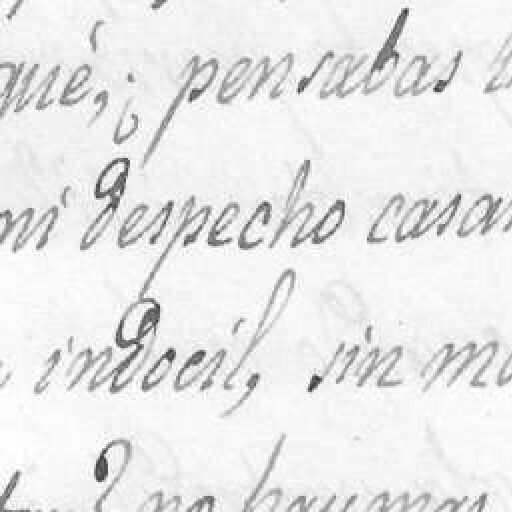 qué, ¿ pensabas
mi despecho casar
indocil, sin
? no hay mas